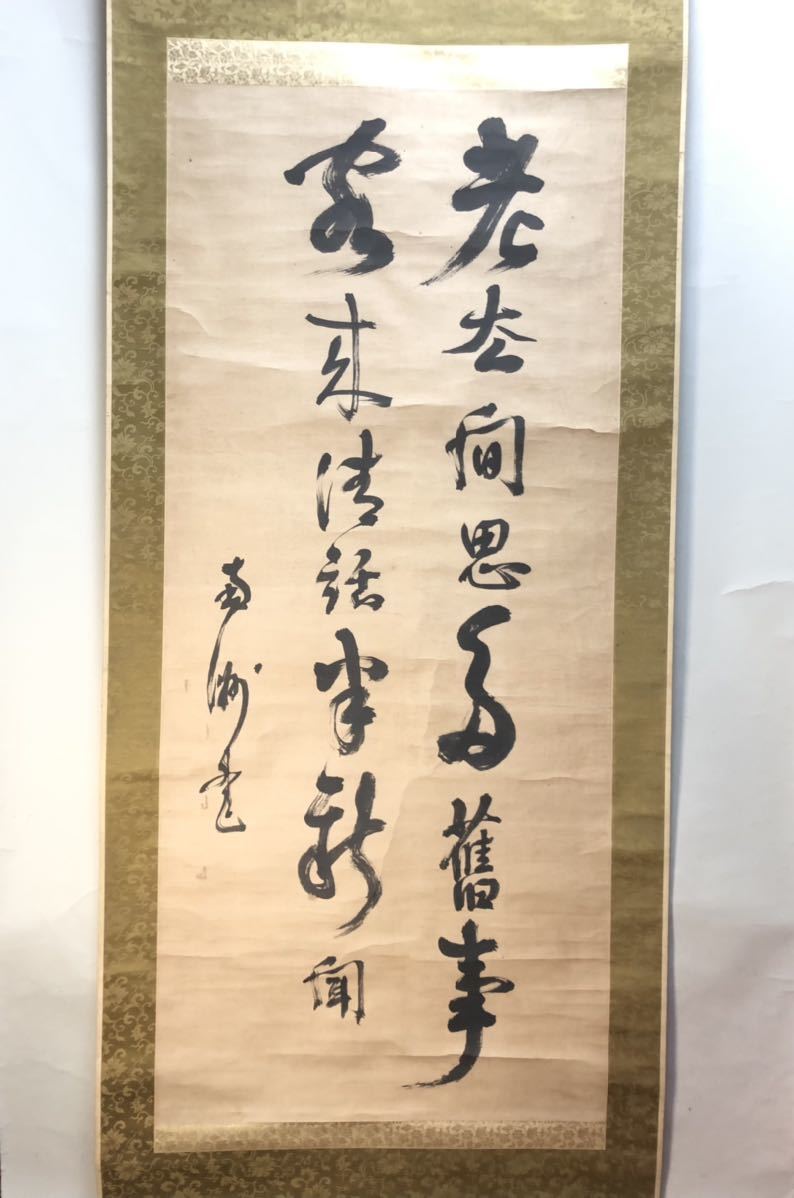 老去閒思多舊事
客来清話半新聞
南洲書